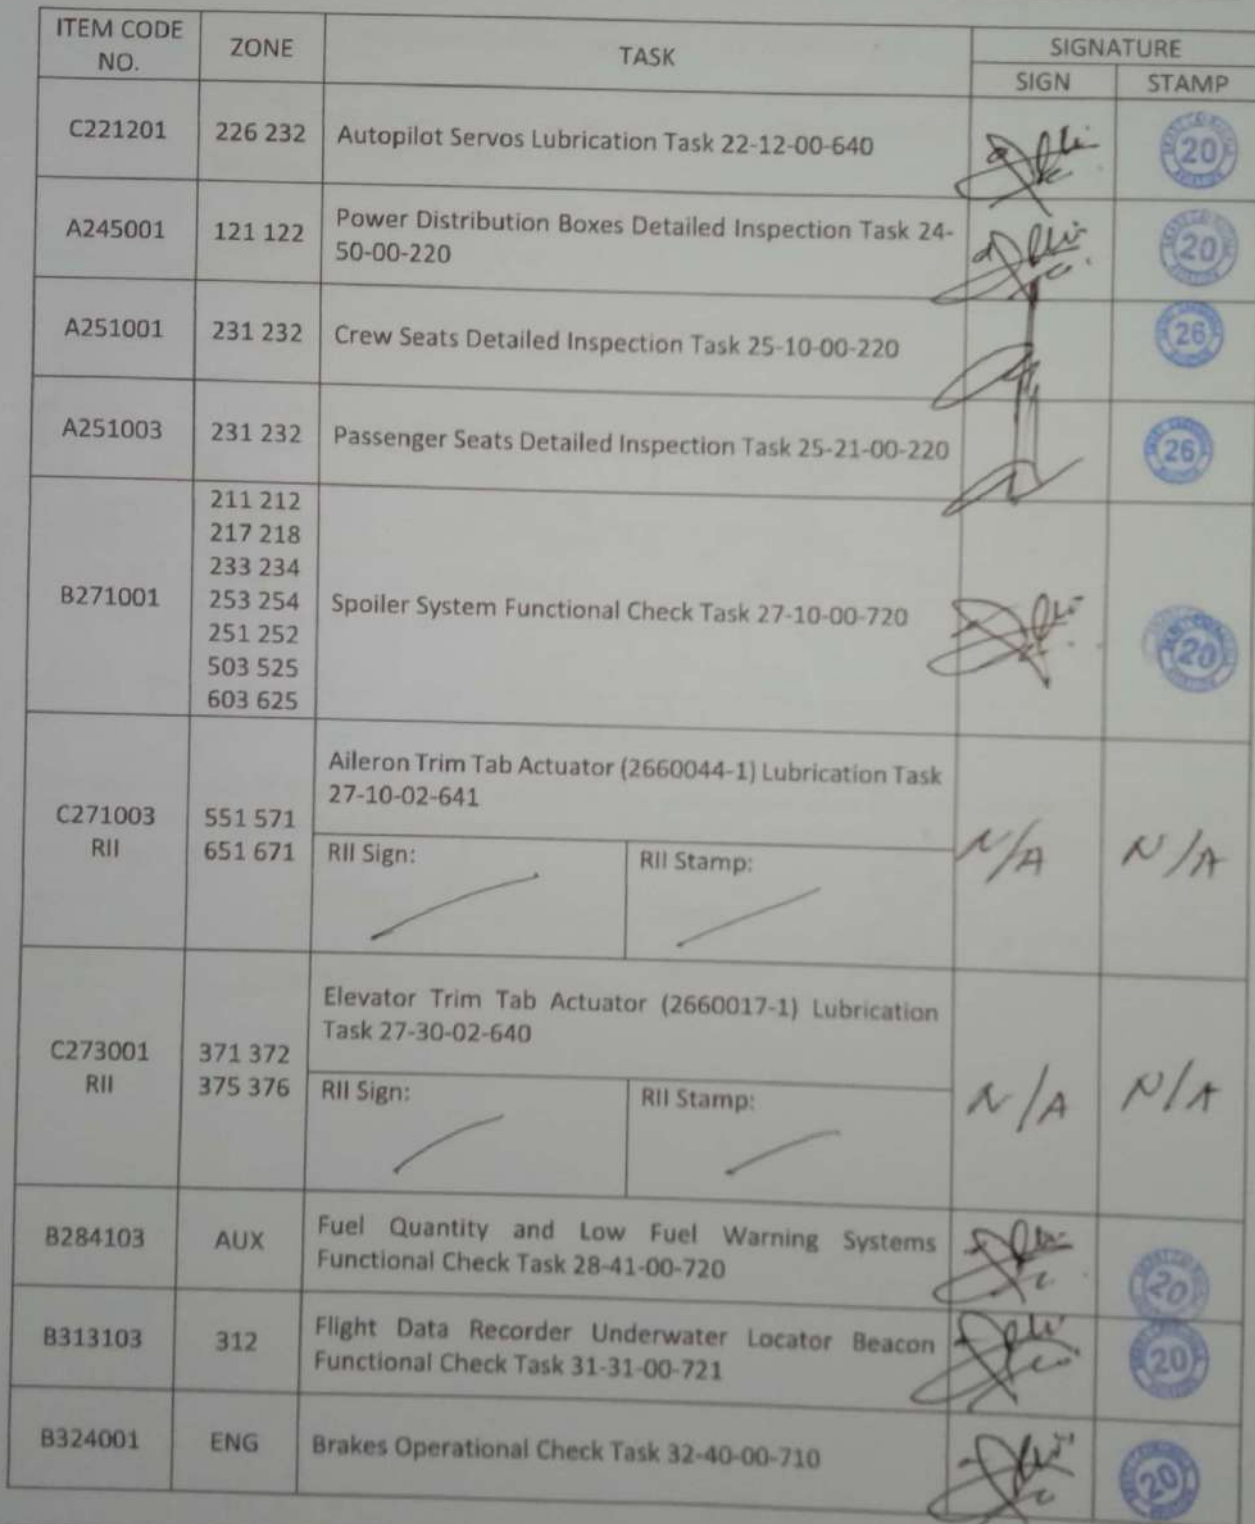 ITEM CODE NO.
ZONE
TASK
SIGNATURE
SIGN
STAMP
C221201
226 232
Autopilot Servos Lubrication Task 22-12-00-640
20
A245001
121 122
Power Distribution Boxes Detailed Inspection Task 24-
50-00-220
20
A251001
231 232
Crew Seats Detailed Inspection Task 25-10-00-220
26
A251003
231 232
Passenger Seats Detailed Inspection Task 25-21-00-220
26
B271001
211 212
217 218
233 234
253 254
251 252
503 525
603 625
Spoiler System Functional Check Task 27-10-00-720
20
C271003
RII
551 571
651 671
Aileron Trim Tab Actuator (2660044-1) Lubrication Task
27-10-02-641
RII Sign:
RII Stamp:
N/A
N/A
C273001
RII
371 372
375 376
Elevator Trim Tab Actuator (2660017-1) Lubrication
Task 27-30-02-640
RII Sign:
RII Stamp:
N/A
N/A
B284103
AUX
Fuel Quantity and Low Fuel Warning Systems
Functional Check Task 28-41-00-720
20
B313103
312
Flight Data Recorder Underwater Locator Beacon
Functional Check Task 31-31-00-721
20
B324001
ENG
Brakes Operational Check Task 32-40-00-710
20